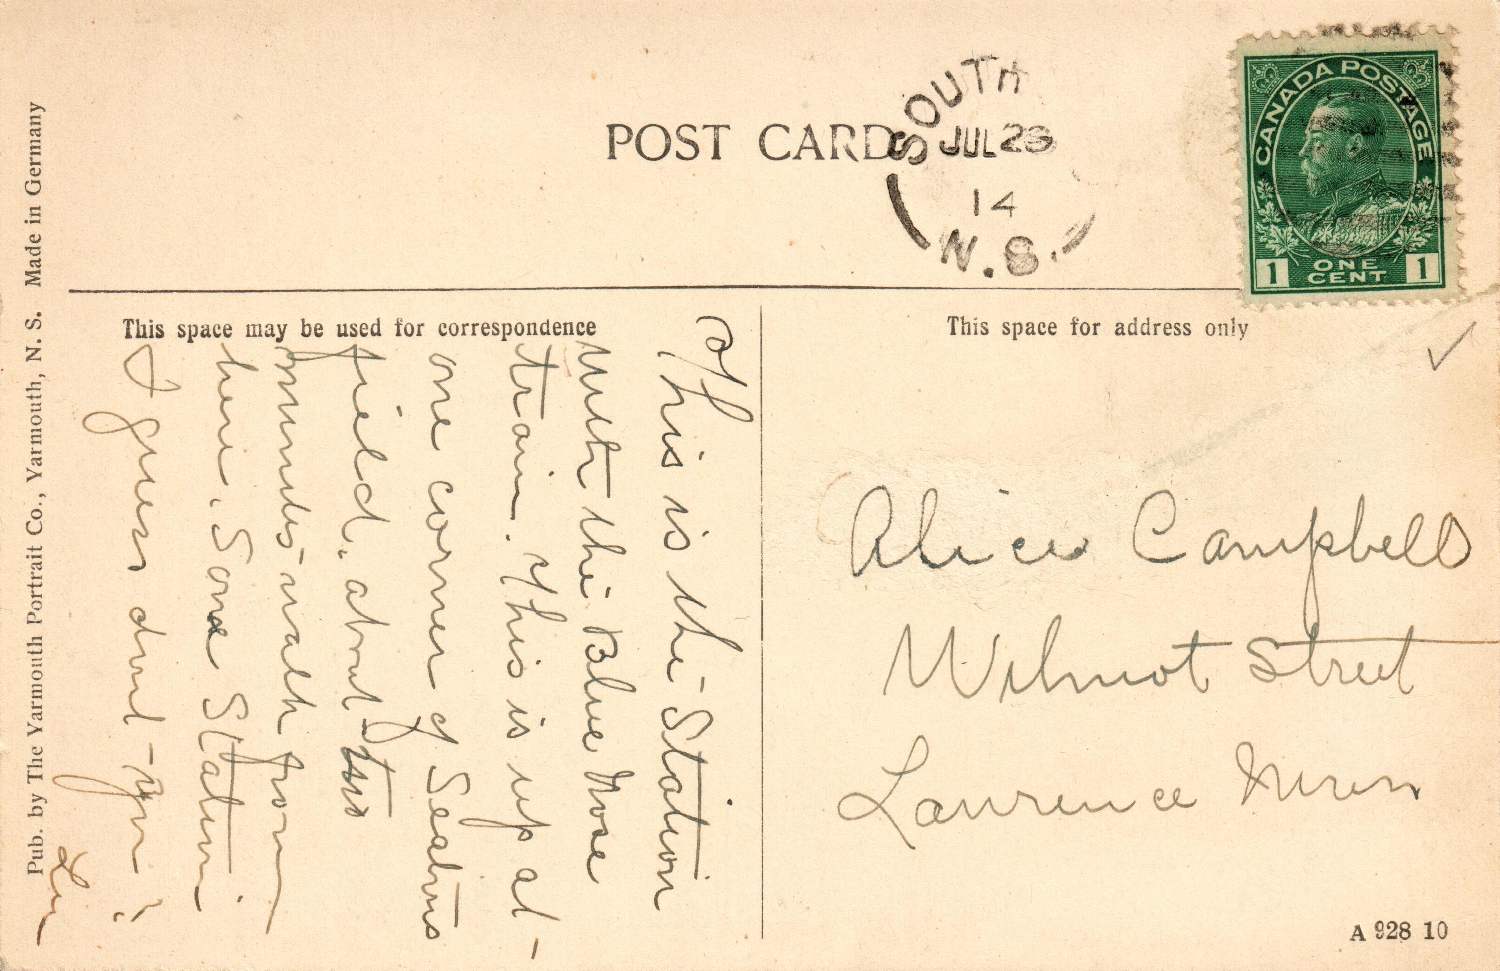 POST CARD
SOUTH
JUL 29
14
N.S.
CANADA POSTAGE
1 ONE CENT 1
Pub. by The Yarmouth Portrait Co., Yarmouth, N. S. Made in Germany
This space may be used for correspondence
This is the Station
with the Blue Nose
train. This is up at
one corner of Seatons
field. about two
minutes walk from
here. Some Station
I guess dont you?
This space for address only
Alice Campbell
Wilmot Street
Lawrence
A 928 10